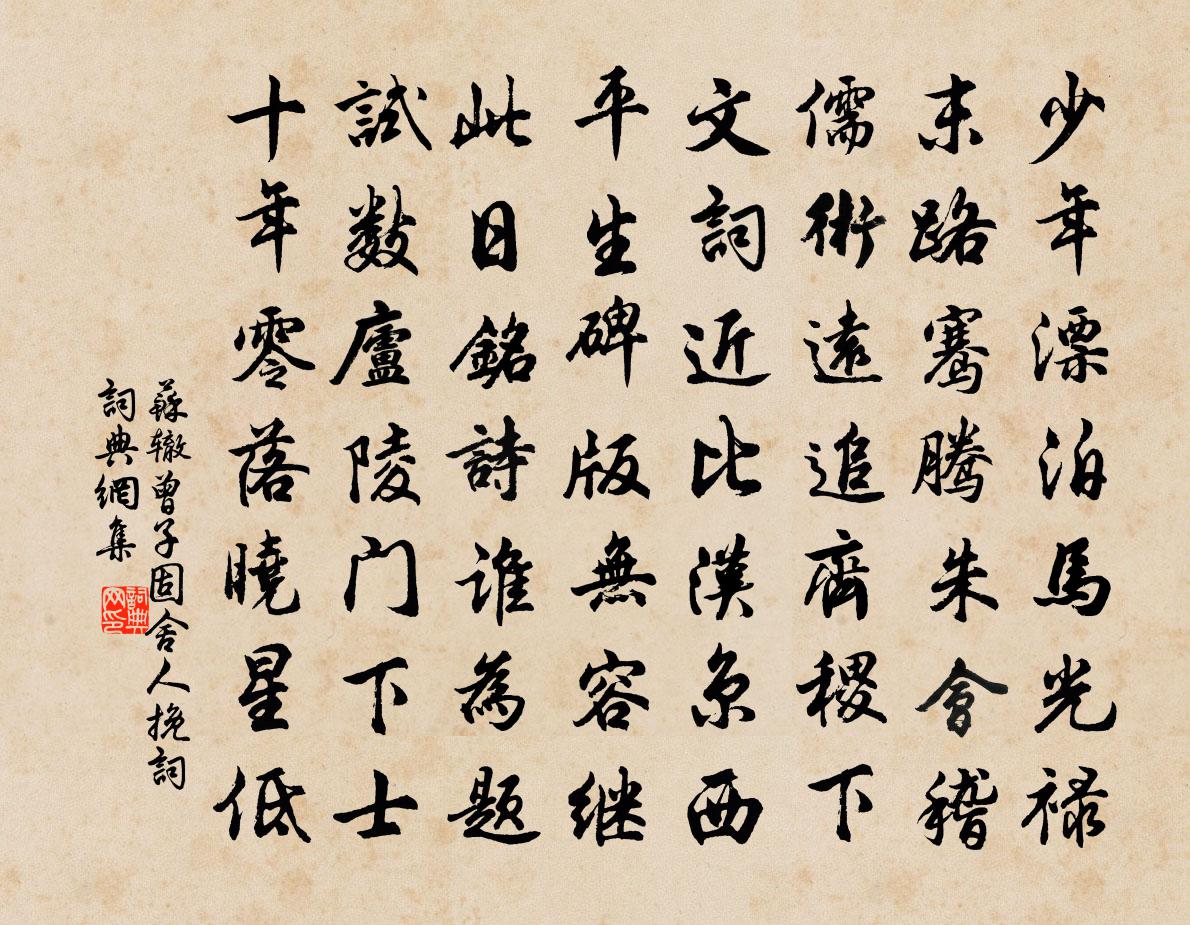 少年漂泊馬光禄
末路騫騰朱會稽
儒術遠追齊稷下
文詞近比漢京西
平生碑版無容继
此日銘詩誰為题
試數廬陵门下士
十年零落曉星低
蘇辙曾子固舍人挽詞
詞典網集
詞典网印